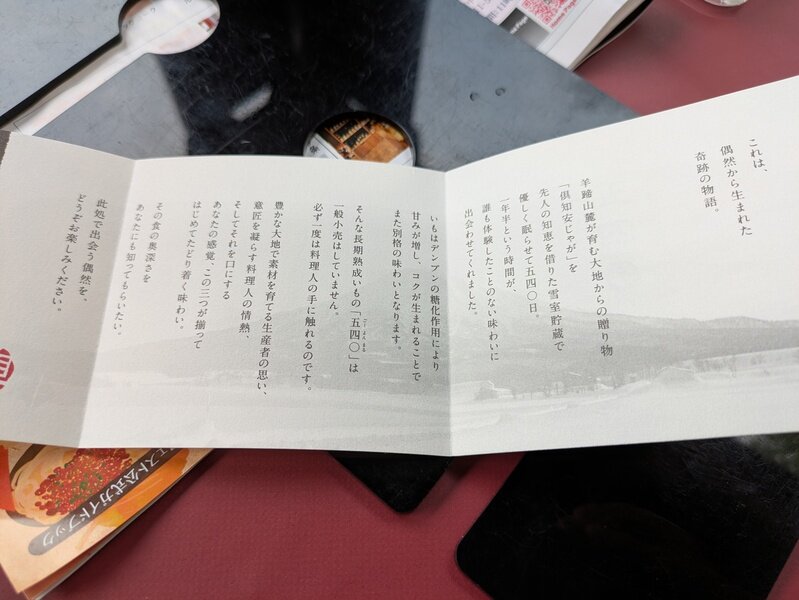 これは、
偶然から生まれた
奇跡の物語。
羊蹄山麓が育む大地からの贈り物
「倶知安じゃが」を
先人の知恵を借りた雪室貯蔵で
優しく眠らせて五四〇日。
一年半という時間が、
誰も体験したことのない味わいに
出会わせてくれました。
いもはデンプンの糖化作用により
甘みが増し、コクが生まれることで
また別格の味わいとなります。
そんな長期熟成いもの「五四〇」は
ごーよんまる
一般小売はしていません。
必ず一度は料理人の手に触れるのです。
豊かな大地で素材を育てる生産者の思い、
意匠を凝らす料理人の情熱、
そしてそれを口にする
あなたの感覚、この三つが揃って
はじめてたどり着く味わい。
その食の奥深さを
あなたにも知ってもらいたい。
此処で出会う偶然を、
どうぞお楽しみください。
エスト公式ガイドブック
Home Page